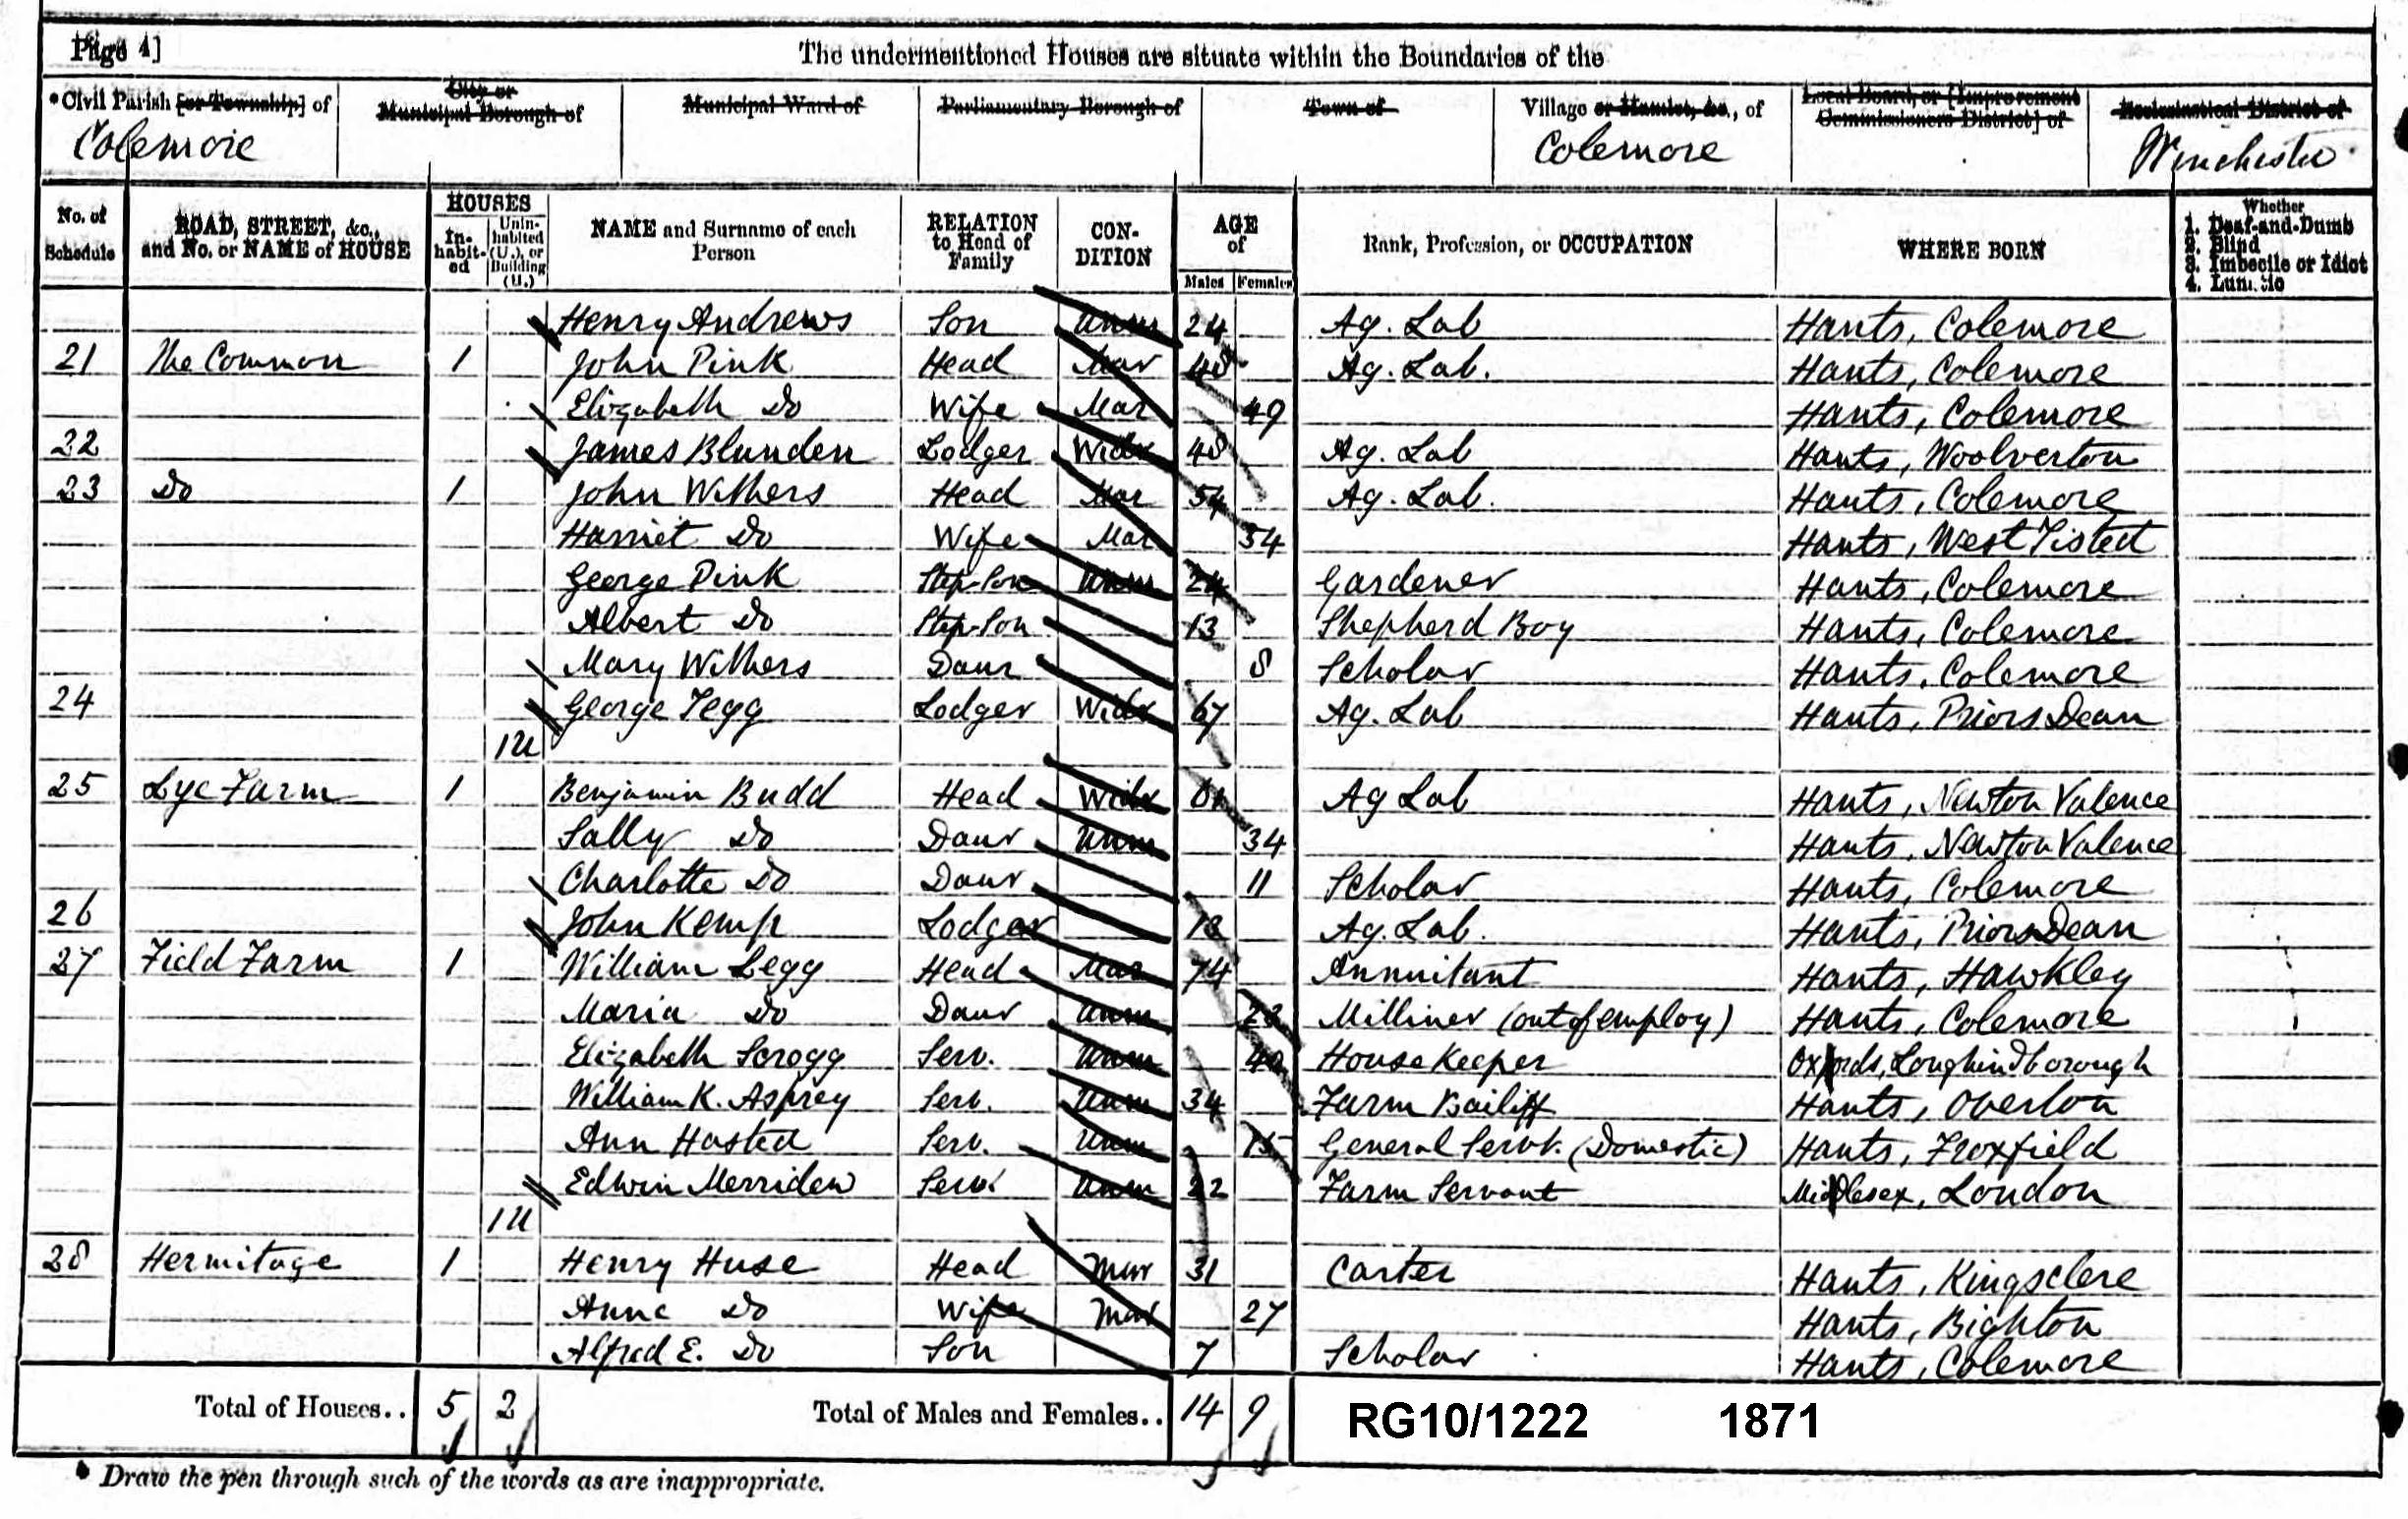 Page 4]
The undermentioned Houses are situate within the Boundaries of the
*Civil Parish [or Township] of
City or Municipal Borough of
Municipal Ward of
Parliamentary Borough of
Town of
Village or Hamlet, &c., of
Local Board, or [Improvement Commissioners District] of
Ecclesiastical District of
Colemore Colemore Winchester
No. of Schedule
ROAD, STREET, &c., and No. or NAME of HOUSE
HOUSES
In-habit-ed
Unin-habited (U.), or Building (U.)
NAME and Surname of each Person
RELATION to Head of Family
CON-DITION
AGE of
Males Females
Rank, Profession, or OCCUPATION
WHERE BORN
Whether
1. Deaf-and-Dumb
2. Blind
3. Imbecile or Idiot
4. Lunatic
Henry Andrews Son Unm 24 Ag. Lab Hants, Colemore
21 The Common 1 John Pink Head Mar 48 Ag. Lab. Hants, Colemore
Elizabeth Do Wife Mar 49 Hants, Colemore
22 James Blunden Lodger Widr 48 Ag. Lab Hants, Woolverton
23 Do 1 John Withers Head Mar 54 Ag. Lab. Hants, Colemore
Harriet Do Wife Mar 54 Hants, West Tisted
George Pink Step-Son Unm 24 Gardener Hants, Colemore
Albert Do Step-Son 13 Shepherd Boy Hants, Colemore
Mary Withers Daur 8 Scholar Hants, Colemore
24 George Tegg Lodger Widr 67 Ag. Lab Hants, Priors Dean
1U
25 Lye Farm 1 Benjamin Budd Head Widr Ag Lab Hants, Newton Valence
Sally Do Daur Unm 34 Hants, Newton Valence
Charlotte Do Daur 11 Scholar Hants, Colemore
26 John Kemp Lodger Ag. Lab. Hants, Priors Dean
27 Field Farm 1 William Legg Head Mar 74 Annuitant Hants, Hawkley
Maria Do Daur Unm 23 Milliner (out of employ) Hants, Colemore
Elizabeth Scrogg Serv. Unm House Keeper Oxfords, Loughindborough
William K. Asprey Serv. Unm 34 Farm Bailiff Hants, Overton
Ann Hasted Serv. Unm 15 General Servt. (Domestic) Hants, Froxfield
Edwin Merriden Serv. Unm 22 Farm Servant Middlesex, London
1U
28 Hermitage 1 Henry Huse Head Mar 31 Carter Hants, Kingsclere
Anne Do Wife Mar 27 Hants, Bighton
Alfred E. Do Son 7 Scholar Hants, Colemore
Total of Houses.. 5 2 Total of Males and Females.. 14 9 RG10/1222 1871
* Draw the pen through such of the words as are inappropriate.